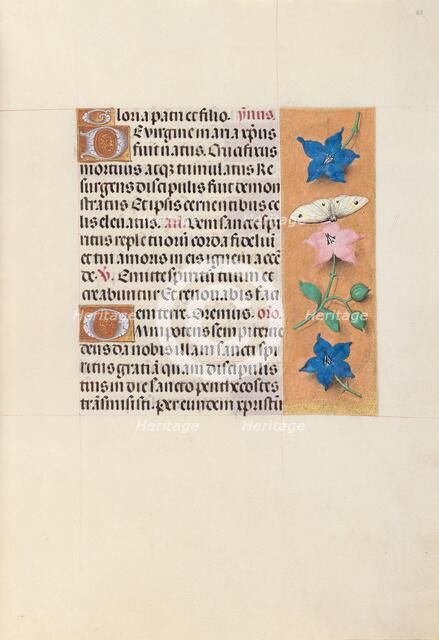 Gloria patri et filio. ymnus.
De virgine maria xp̄us
fuit natus. Crucifixus
mortuus atqȝ tumulatus Re
surgens discipulis fuit demon
stratus Et ipsis cernentibus ce
lis eleuatus. an̄. Veni sancte spi
ritus reple tuorū corda fideliū
et tui amoris in eis ignem accē
de. V̄. Emitte spiritū tuum et
creabuntur Et renouabis faci
em terre. Oremus. oro̅.
Omnipotens sempiterne
deus da nobis illam sancti spi
ritus gratiā quam discipulis
tuis in die sancto penthecostes
trāsmisisti. Per eundem xpristū
Heritage
Heritage
Heritage
Heritage
Heritage
Heritage
Heritage
Heritage
Heritage